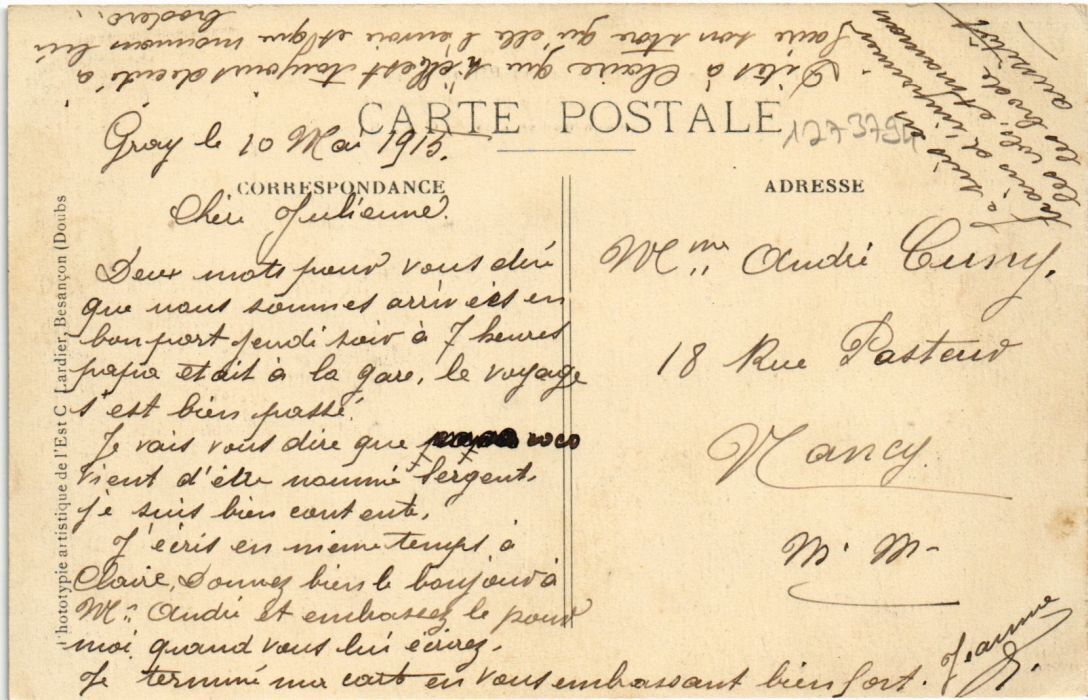 CARTE POSTALE
127379
Gray le 10 Mai 1915.
CORRESPONDANCE
Chère Julienne.
Deux mots pour vous dire
que nous sommes arrivées en
bon port jeudi soir à 7 heures
papa etait à la gare, le voyage
s'est bien passé.
Je vais vous dire que coco
vient d'être nommé Sergent.
je suis bien contente.
J'écris en meme temps à
Claire, Donnez bien le bonjour à
Mr André et embrassez le pour
moi quand vous lui écrirez.
Je termine ma carte en vous embrassant bien fort.
Jeanne
Dites à Claire que si elle est toujours decidé à
faire son stor qu'elle l'envoie et que maman lui
brodera.
les brode
aussitôt
ADRESSE
Mme André Cuny.
18 Rue Pasteur
Nancy
M. M.
Phototypie artistique de l'Est C. Lardier, Besançon (Doubs